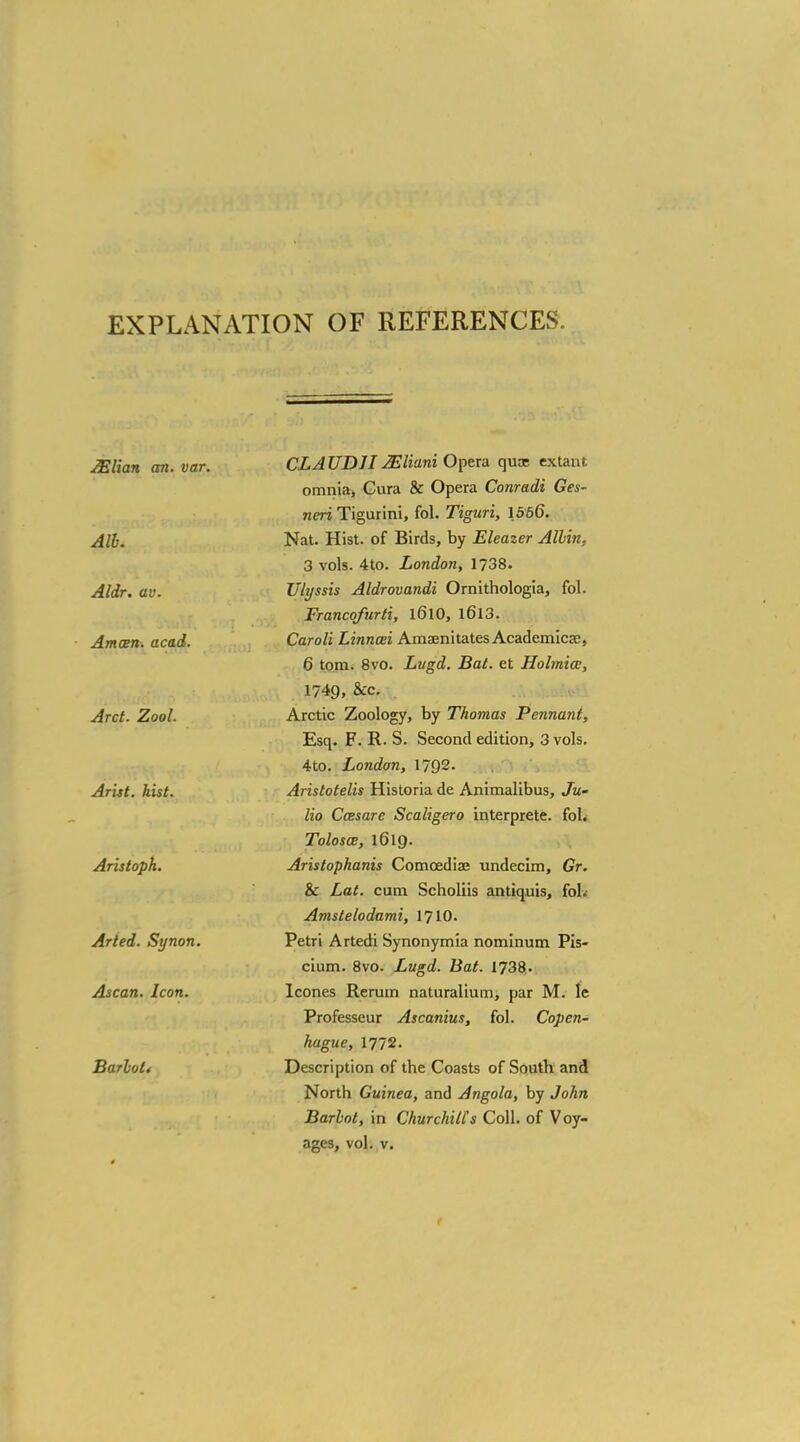 EXPLANATION OF REFERENCES.
Ælian an. var. CLAUDII Æliani Opera quæ extant
omnia, Cura & Opera Conradi Ges-
neri Tigurini, fol. Tiguri, 1556.
Alb. Nat. Hist. of Birds, by Eleazer Albin,
3 vols. 4to. London, 1738.
Aldr. av. Ulyssis Aldrovandi Ornithologia, fol.
Francofurti, 1610, 1613.
Amœn. acad. Caroli Linnæi Amænitates Academicæ,
6 tom. 8vo. Lugd. Bat. et Holmiæ,
1749, &c.
Arct. Zool. Arctic Zoology, by Thomas Pennant,
Esq. F. R. S. Second edition, 3 vols.
4to. London, 1792.
Arist. hist. Aristotelis Historia de Animalibus, Ju-
lio Cæsare Scaligero interprete. fol.
Tolosæ, 1619.
Aristoph. Aristophanis Comœdiæ undecim, Gr.
& Lat. cum Scholiis antiquis, fol.
Amstelodami, 1710.
Arted. Synon. Petri Artedi Synonymia nominum Pis-
cium. 8vo. Lugd. Bat. 1738.
Ascan. Icon. Icones Rerum naturalium, par M. le
Professeur Ascanius, fol. Copen-
hague, 1772.
Barbot. Description of the Coasts of South and
North Guinea, and Angola, by John
Barbot, in Churchill's Coll. of Voy-
ages, vol. v.